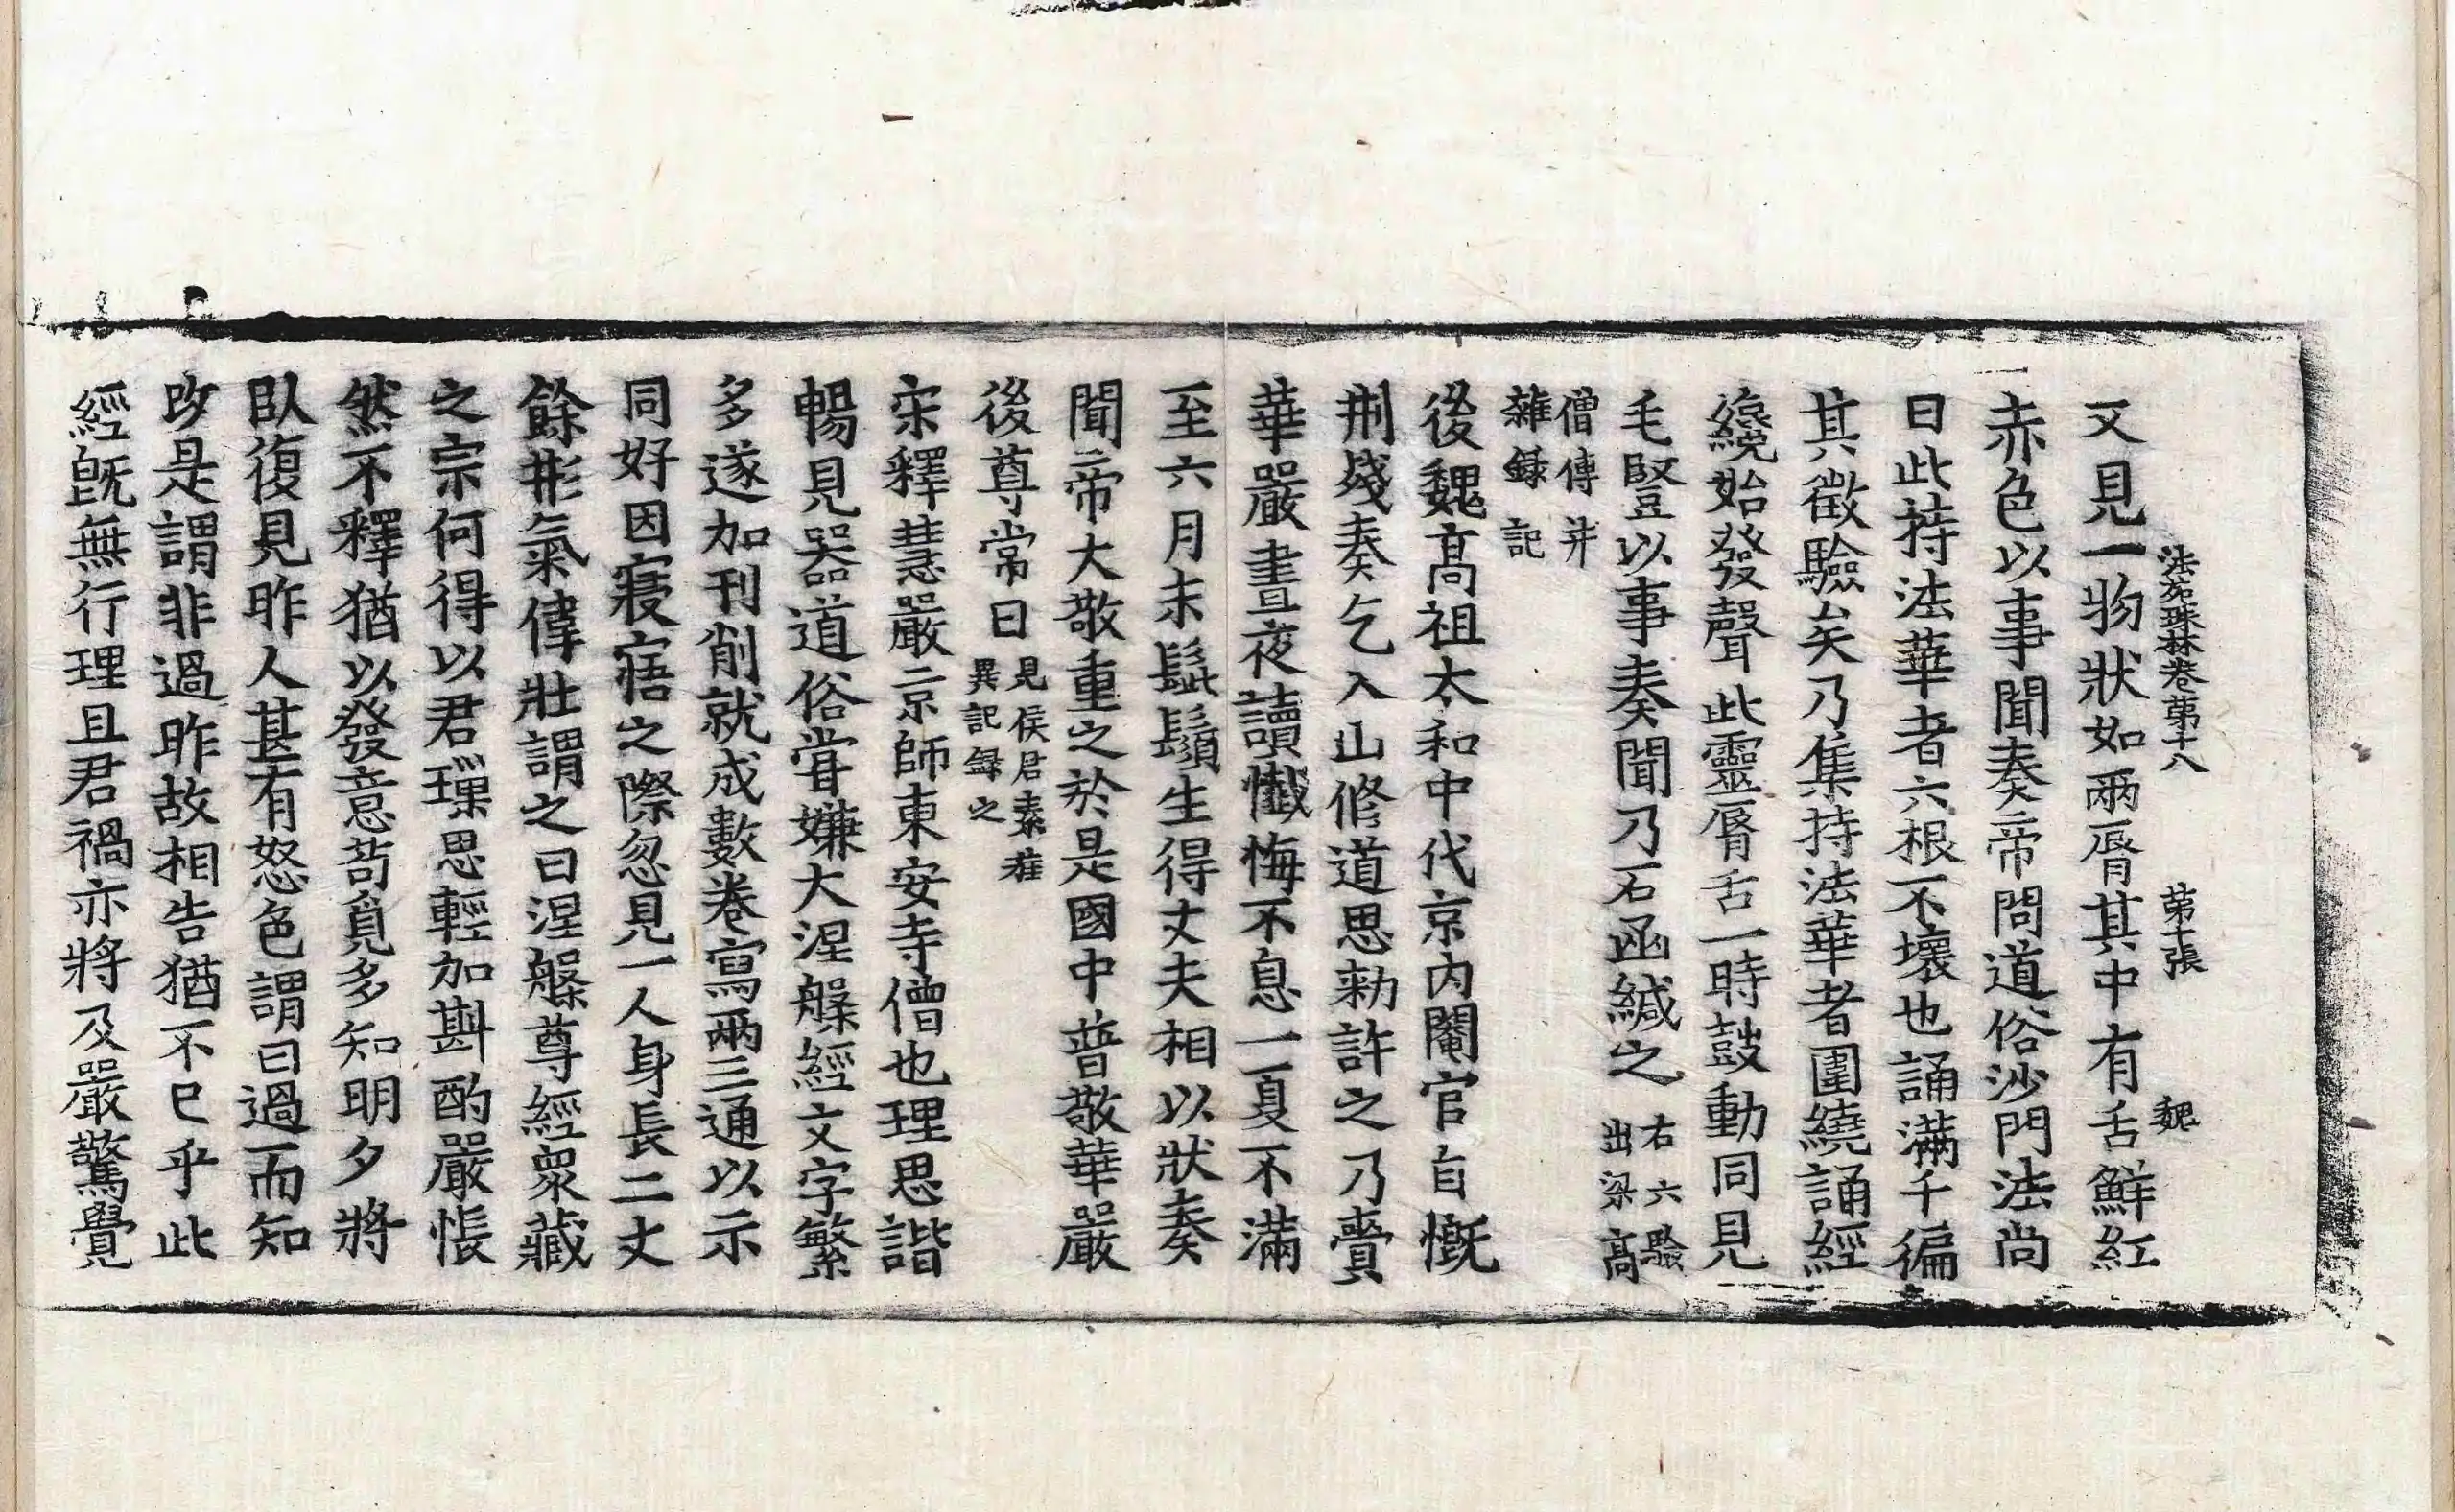 法苑珠林卷第十八　第十張　魏
又見一物狀如兩脣其中有舌鮮紅
赤色以事聞奏帝問道俗沙門法尚
曰此持法華者六根不壞也誦滿千徧
其徵驗矣乃集持法華者圍繞誦經
纔始發聲此靈脣舌一時鼓動同見
毛豎以事奏聞乃石函緘之右六驗出梁高
僧傳并雜録記
後魏高祖太和中代京内閹官自慨
刑殘奏乞入山修道思勑許之乃賷
華嚴晝夜讀懺悔不息一夏不滿
至六月末髭鬚生得丈夫相以狀奏
聞帝大敬重之於是國中普敬華嚴
後尊常日見侯君素旌異記録之
宋釋慧嚴京師東安寺僧也理思諧
暢見器道俗甞嫌大涅槃經文字繁
多遂加刊削就成數卷寫兩三通以示
同好因寢寤之際忽見一人身長二丈
餘形氣偉壯謂之曰涅槃尊經衆藏
之宗何得以君璅思輕加斟酌嚴悵
然不釋猶以發意苟覓多知明夕將
臥復見昨人甚有怒色謂曰過而知
改是謂非過昨故相告猶不已乎此
經旣無行理且君禍亦將及嚴驚覺